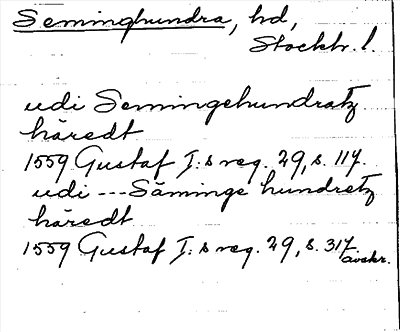 Seminghundra, hd,
Stockh. l.
udi Semingehundratz
häredt
1559 Gustaf I:s reg. 29, s. 117.
udi --- Säminge hundretz
häredt
1559 Gustaf I:s reg. 29, s. 317
avskr.